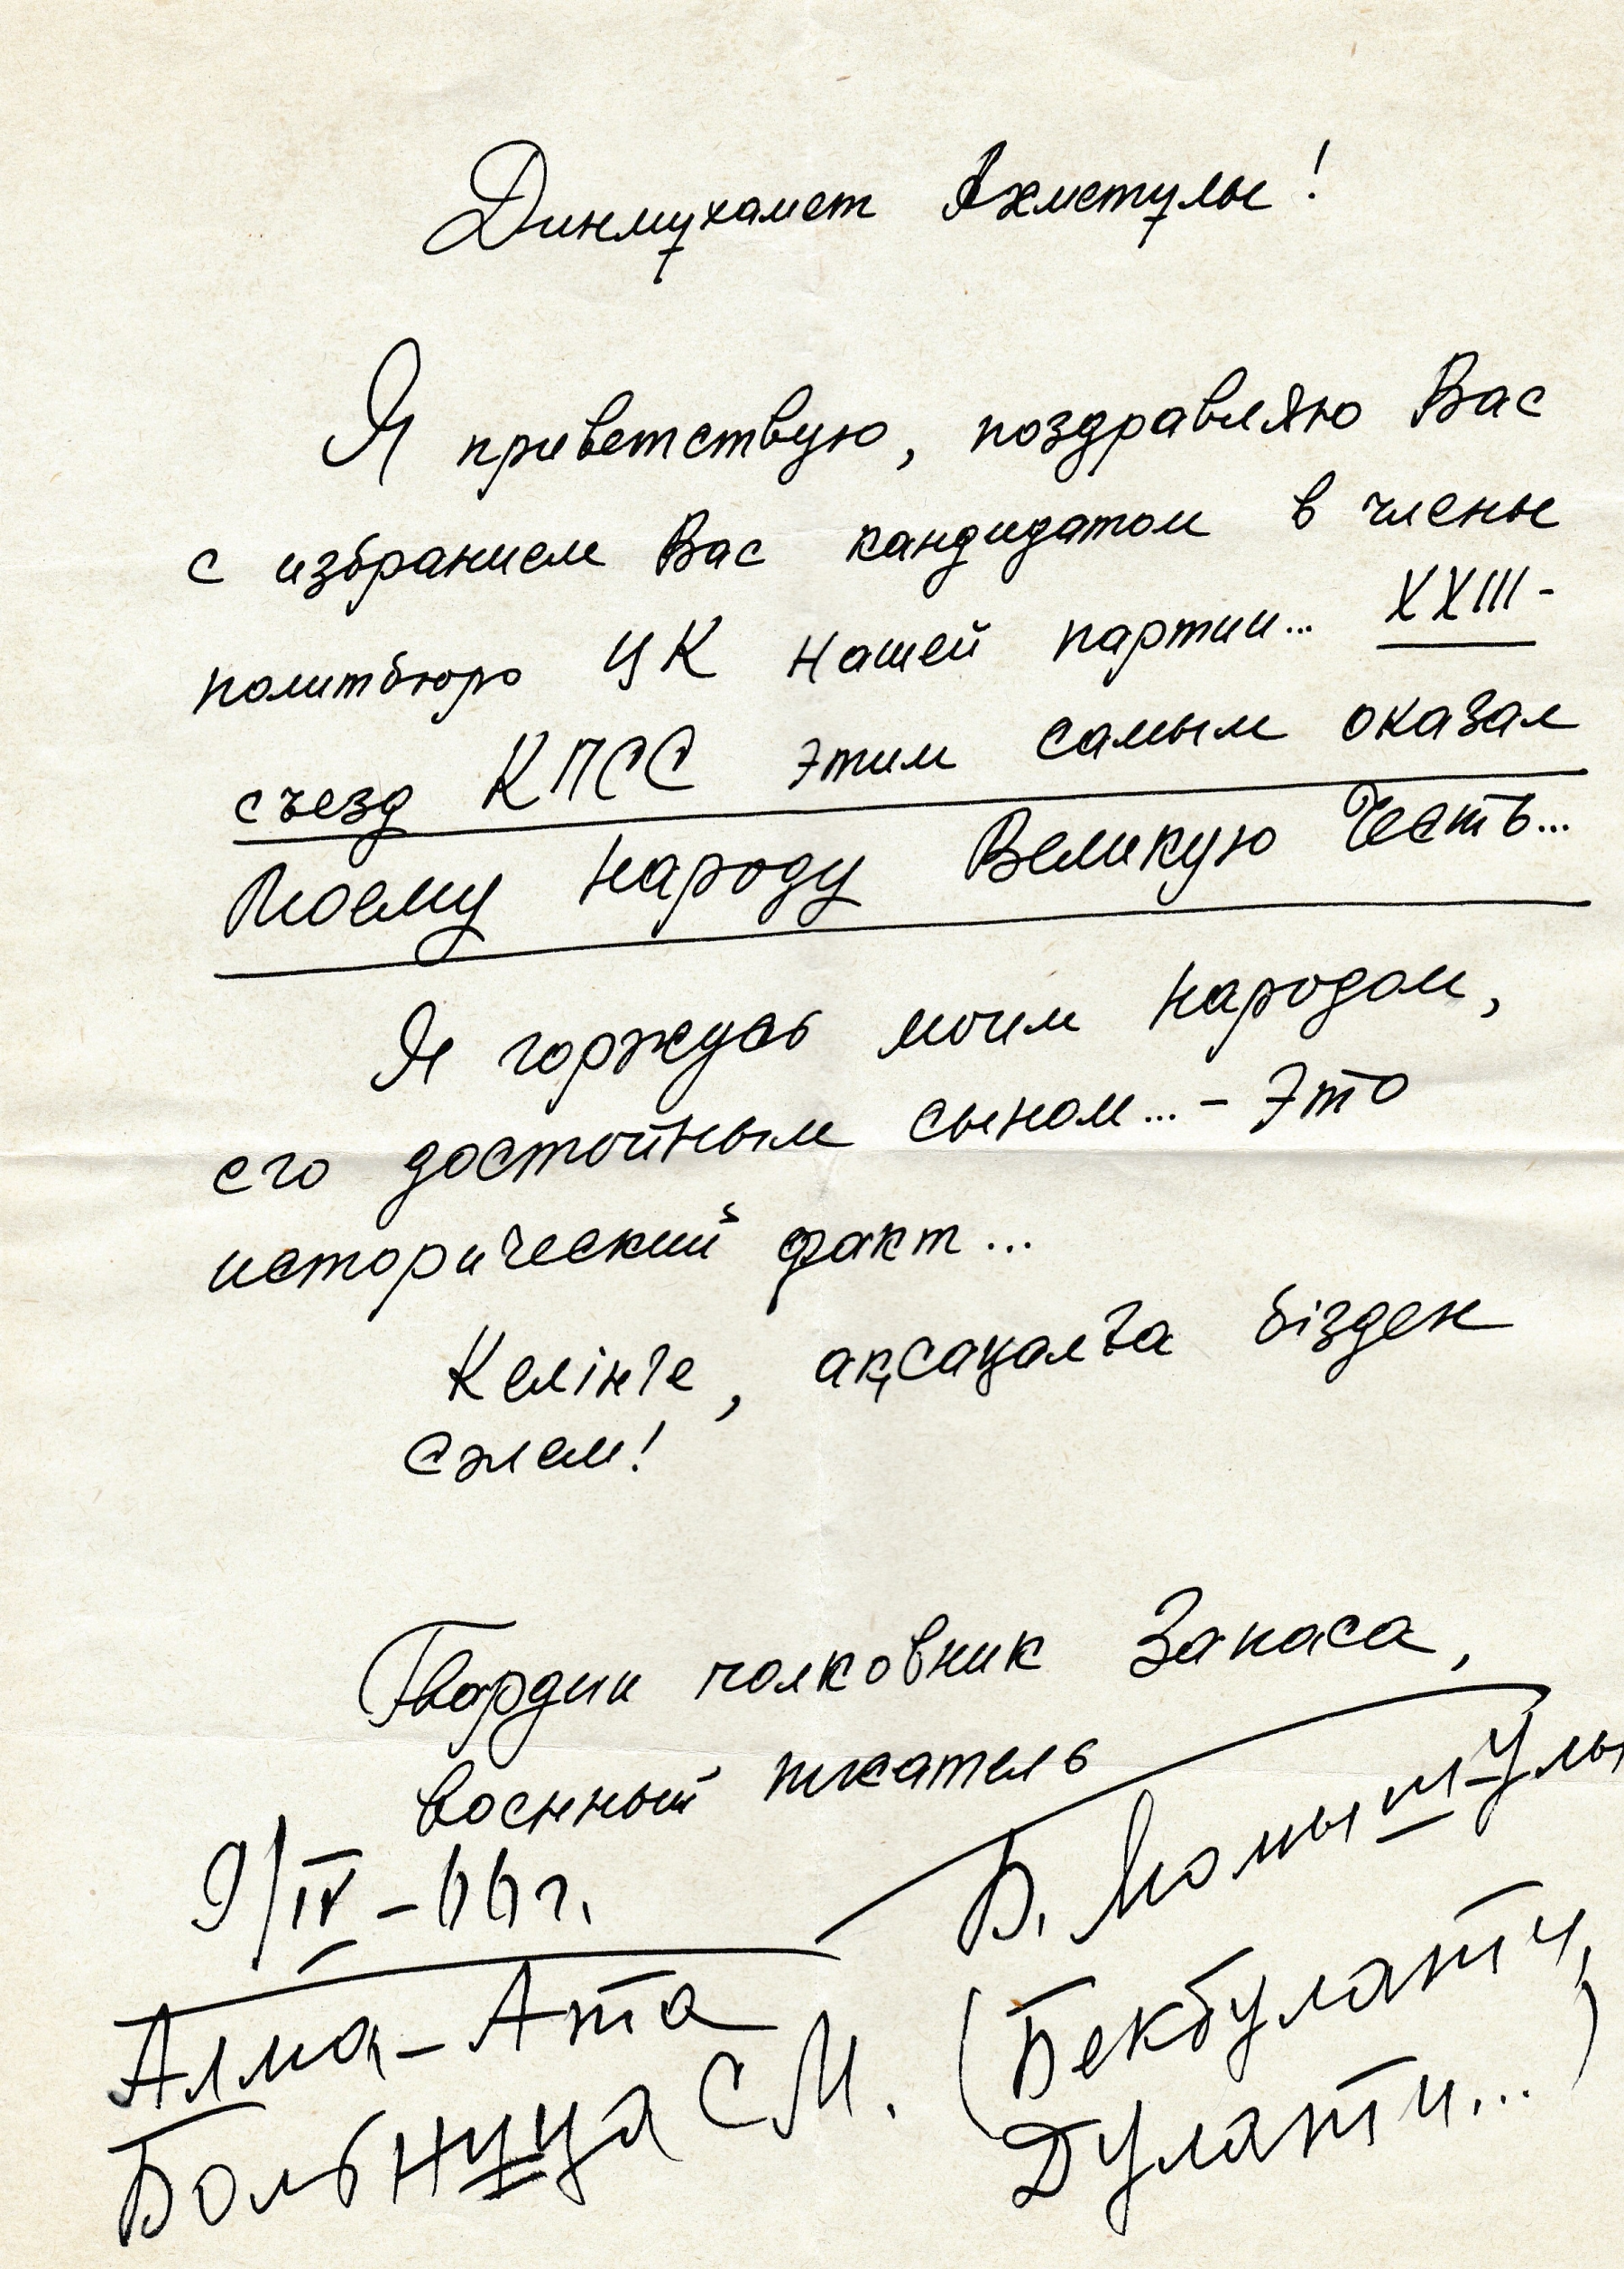 Динмұхамет Ахметұлы!
Я приветствую, поздравляю Вас
с избранием Вас кандидатом в члены
политбюро ЦК Нашей партии... XXIII-
съезд КПСС этим самым оказал
Моему народу Великую Честь...
Я горжусь моим народом,
его достойным сыном... - Это
исторический факт...
Келінге, ақсақалға бізден
сәлем!
Гвардии полковник Запаса,
военный писатель
Б. Момыш-Улы
9/IV-66 г.
Алма-Ата
Больница СМ.
(Бекбулатти,
Дулатти...)